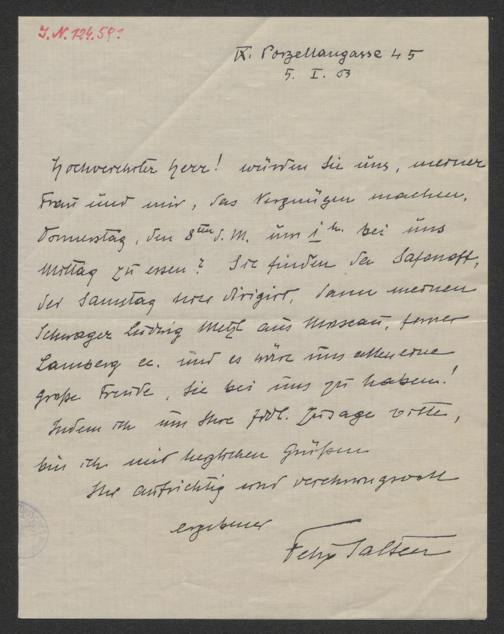 I.N. 124.591
IX. Porzellangasse 45
5. I. 03
Hochverehrter Herr! würden Sie uns, meiner
Frau und mir, das Vergnügen machen,
Donnerstag, den 8ten d. M. um 1 h. bei uns
Mittag zu essen? Sie finden da Safonoff,
der Samstag hier dirigirt, dann meinen
Schwager Ludwig Metzl aus Moscau, ferner
Lamberg etc. und es wäre uns allen eine
große Freude, Sie bei uns zu haben!
Indem ich um Ihre frdl. Zusage bitte,
bin ich mit herzlichen Grüßen
Ihr aufrichtig und verehrungsvoll
ergebener
Felix Salten